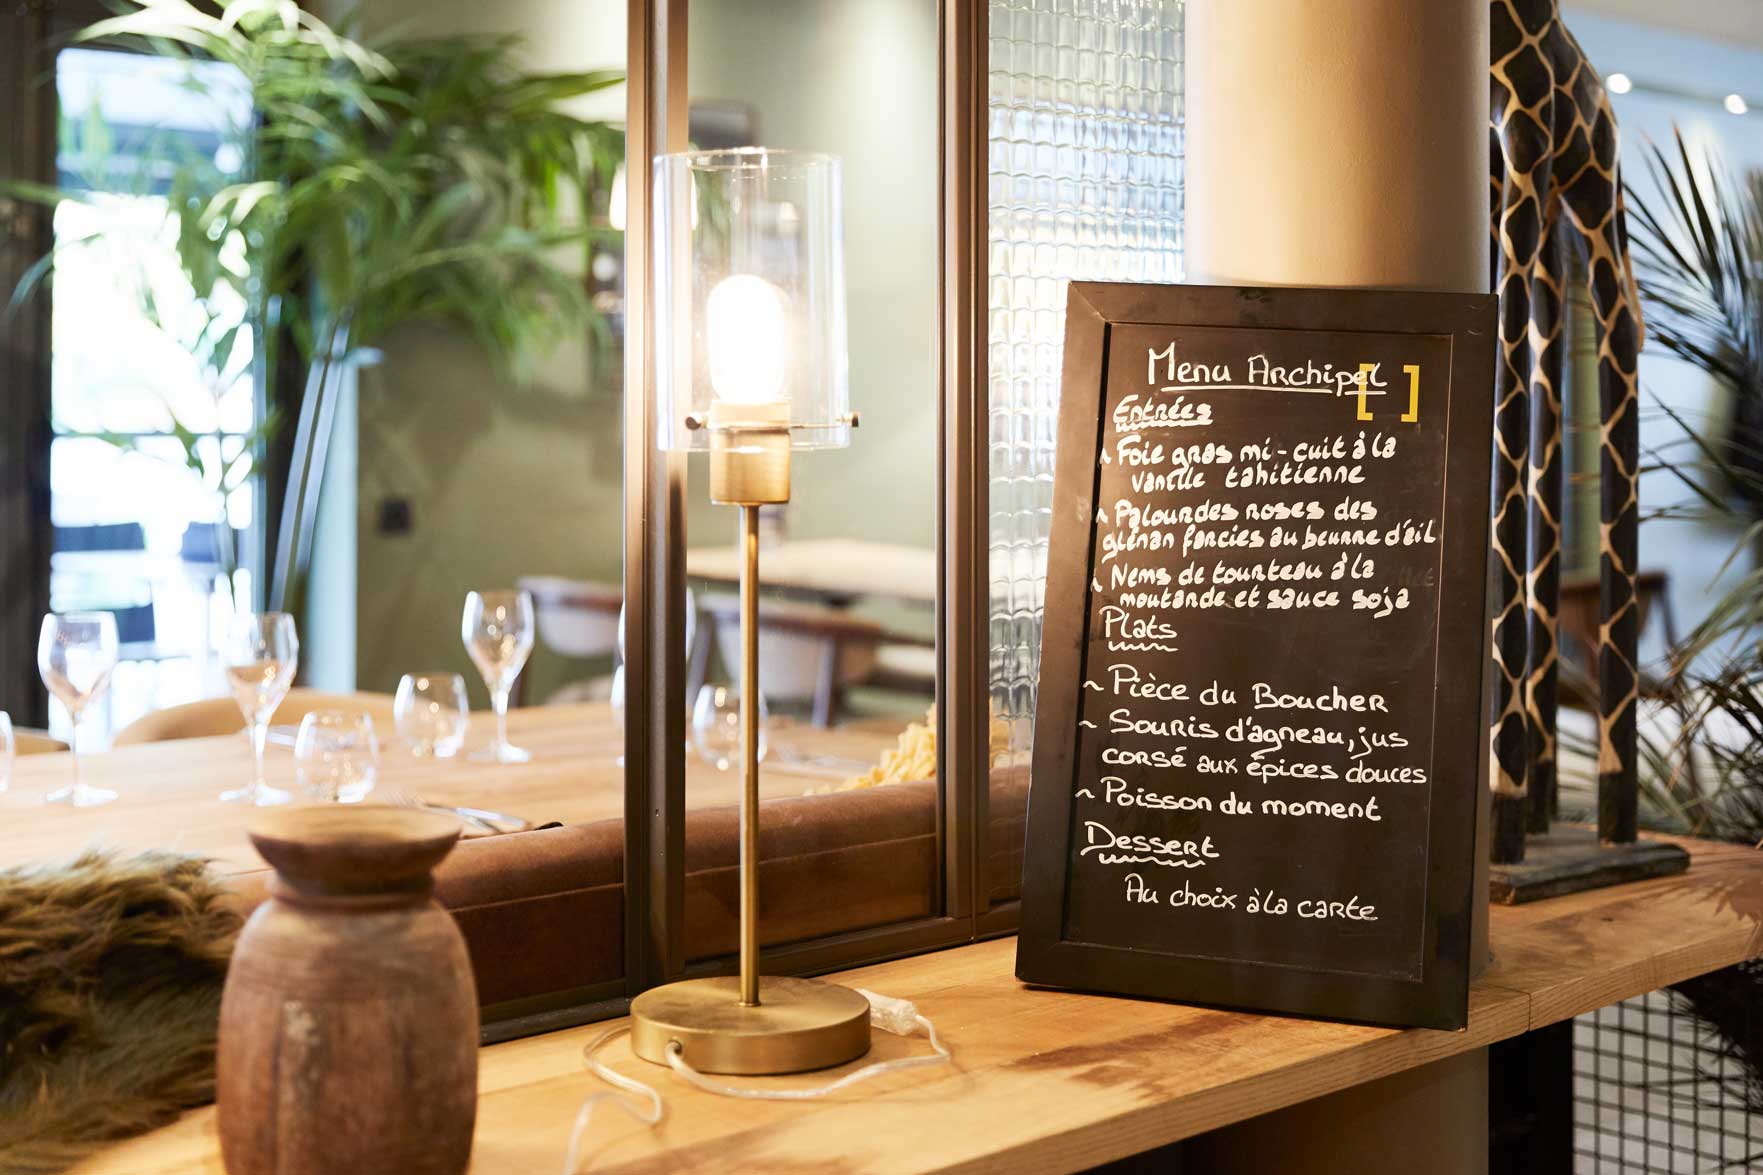 Menu Archipel
[ ]
Entrées
~ Foie gras mi-cuit à la
vanille tahitienne
~ Palourdes roses des
glénan farcies au beurre d'ail
~ Nems de tourteau à la
moutarde et sauce soja
Plats
~ Pièce du Boucher
~ Souris d'agneau, jus
corsé aux épices douces
~ Poisson du moment
Dessert
Au choix à la carte